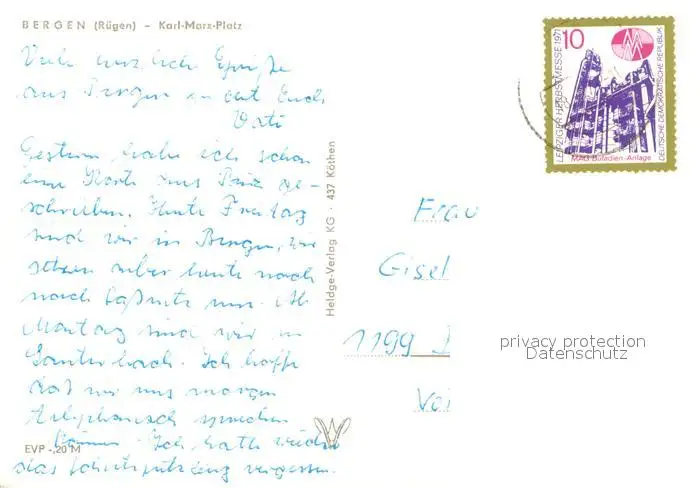 BERGEN (Rügen) – Karl-Marx-Platz
Viele herzliche Grüße
aus Bergen sendet Euch
Vati
Gestern habe ich schon
eine Karte aus Binz ge-
schrieben. Heute Freitag
sind wir in Bergen, wir
setzen aber heute noch
nach Saßnitz um. Ab
Montag sind wir in
Ich hoffe
daß wir uns morgen
telephonisch sprechen
können. Ich hatte wieder
das vergessen.
EVP -,20 M
Heldge-Verlag KG · 437 Köthen
10
LEIPZIGER HERBSTMESSE 1971
DEUTSCHE DEMOKRATISCHE REPUBLIK
MAG-Butadien-Anlage
Frau
Gisel
1199
privacy protection
Datenschutz